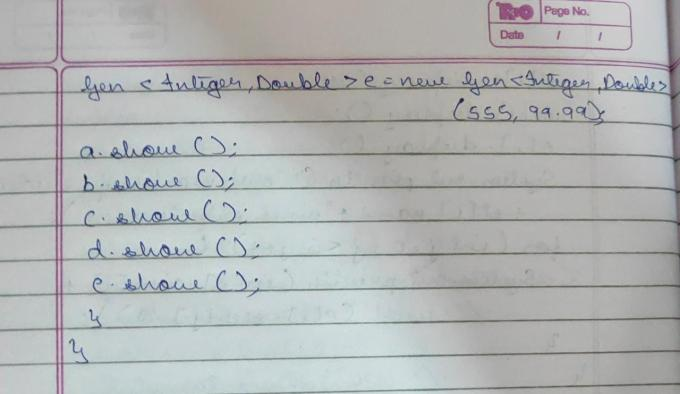 TRO Page No.
Date / /
Gen <Integer, Double> e = new Gen<Integer, Double>
(555, 99.99);
a. show ();
b. show ();
c. show ();
d. show ();
e. show ();
}
}